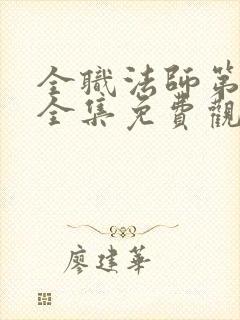 全職法師第
全集免費觀
廖建華